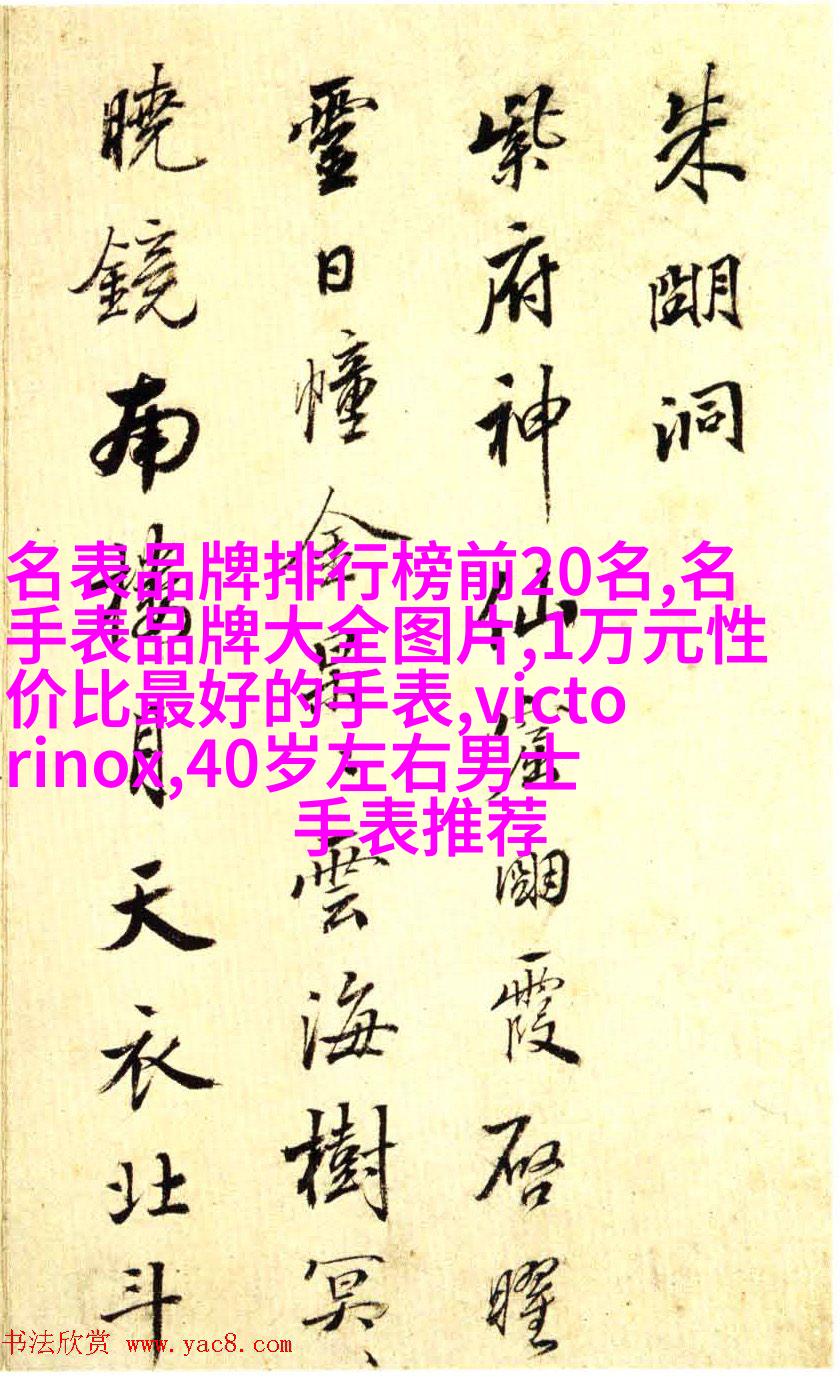 朱朙洞
紫府神仙朙霞啓曜
霊日幢金雲海樹冥、
曉鏡南月天衣北斗
名表品牌排行榜前20名,名
手表品牌大全图片,1万元性
价比最好的手表,victo
rinox,40岁左右男士
手表推荐
书法欣赏 www.yac8.com